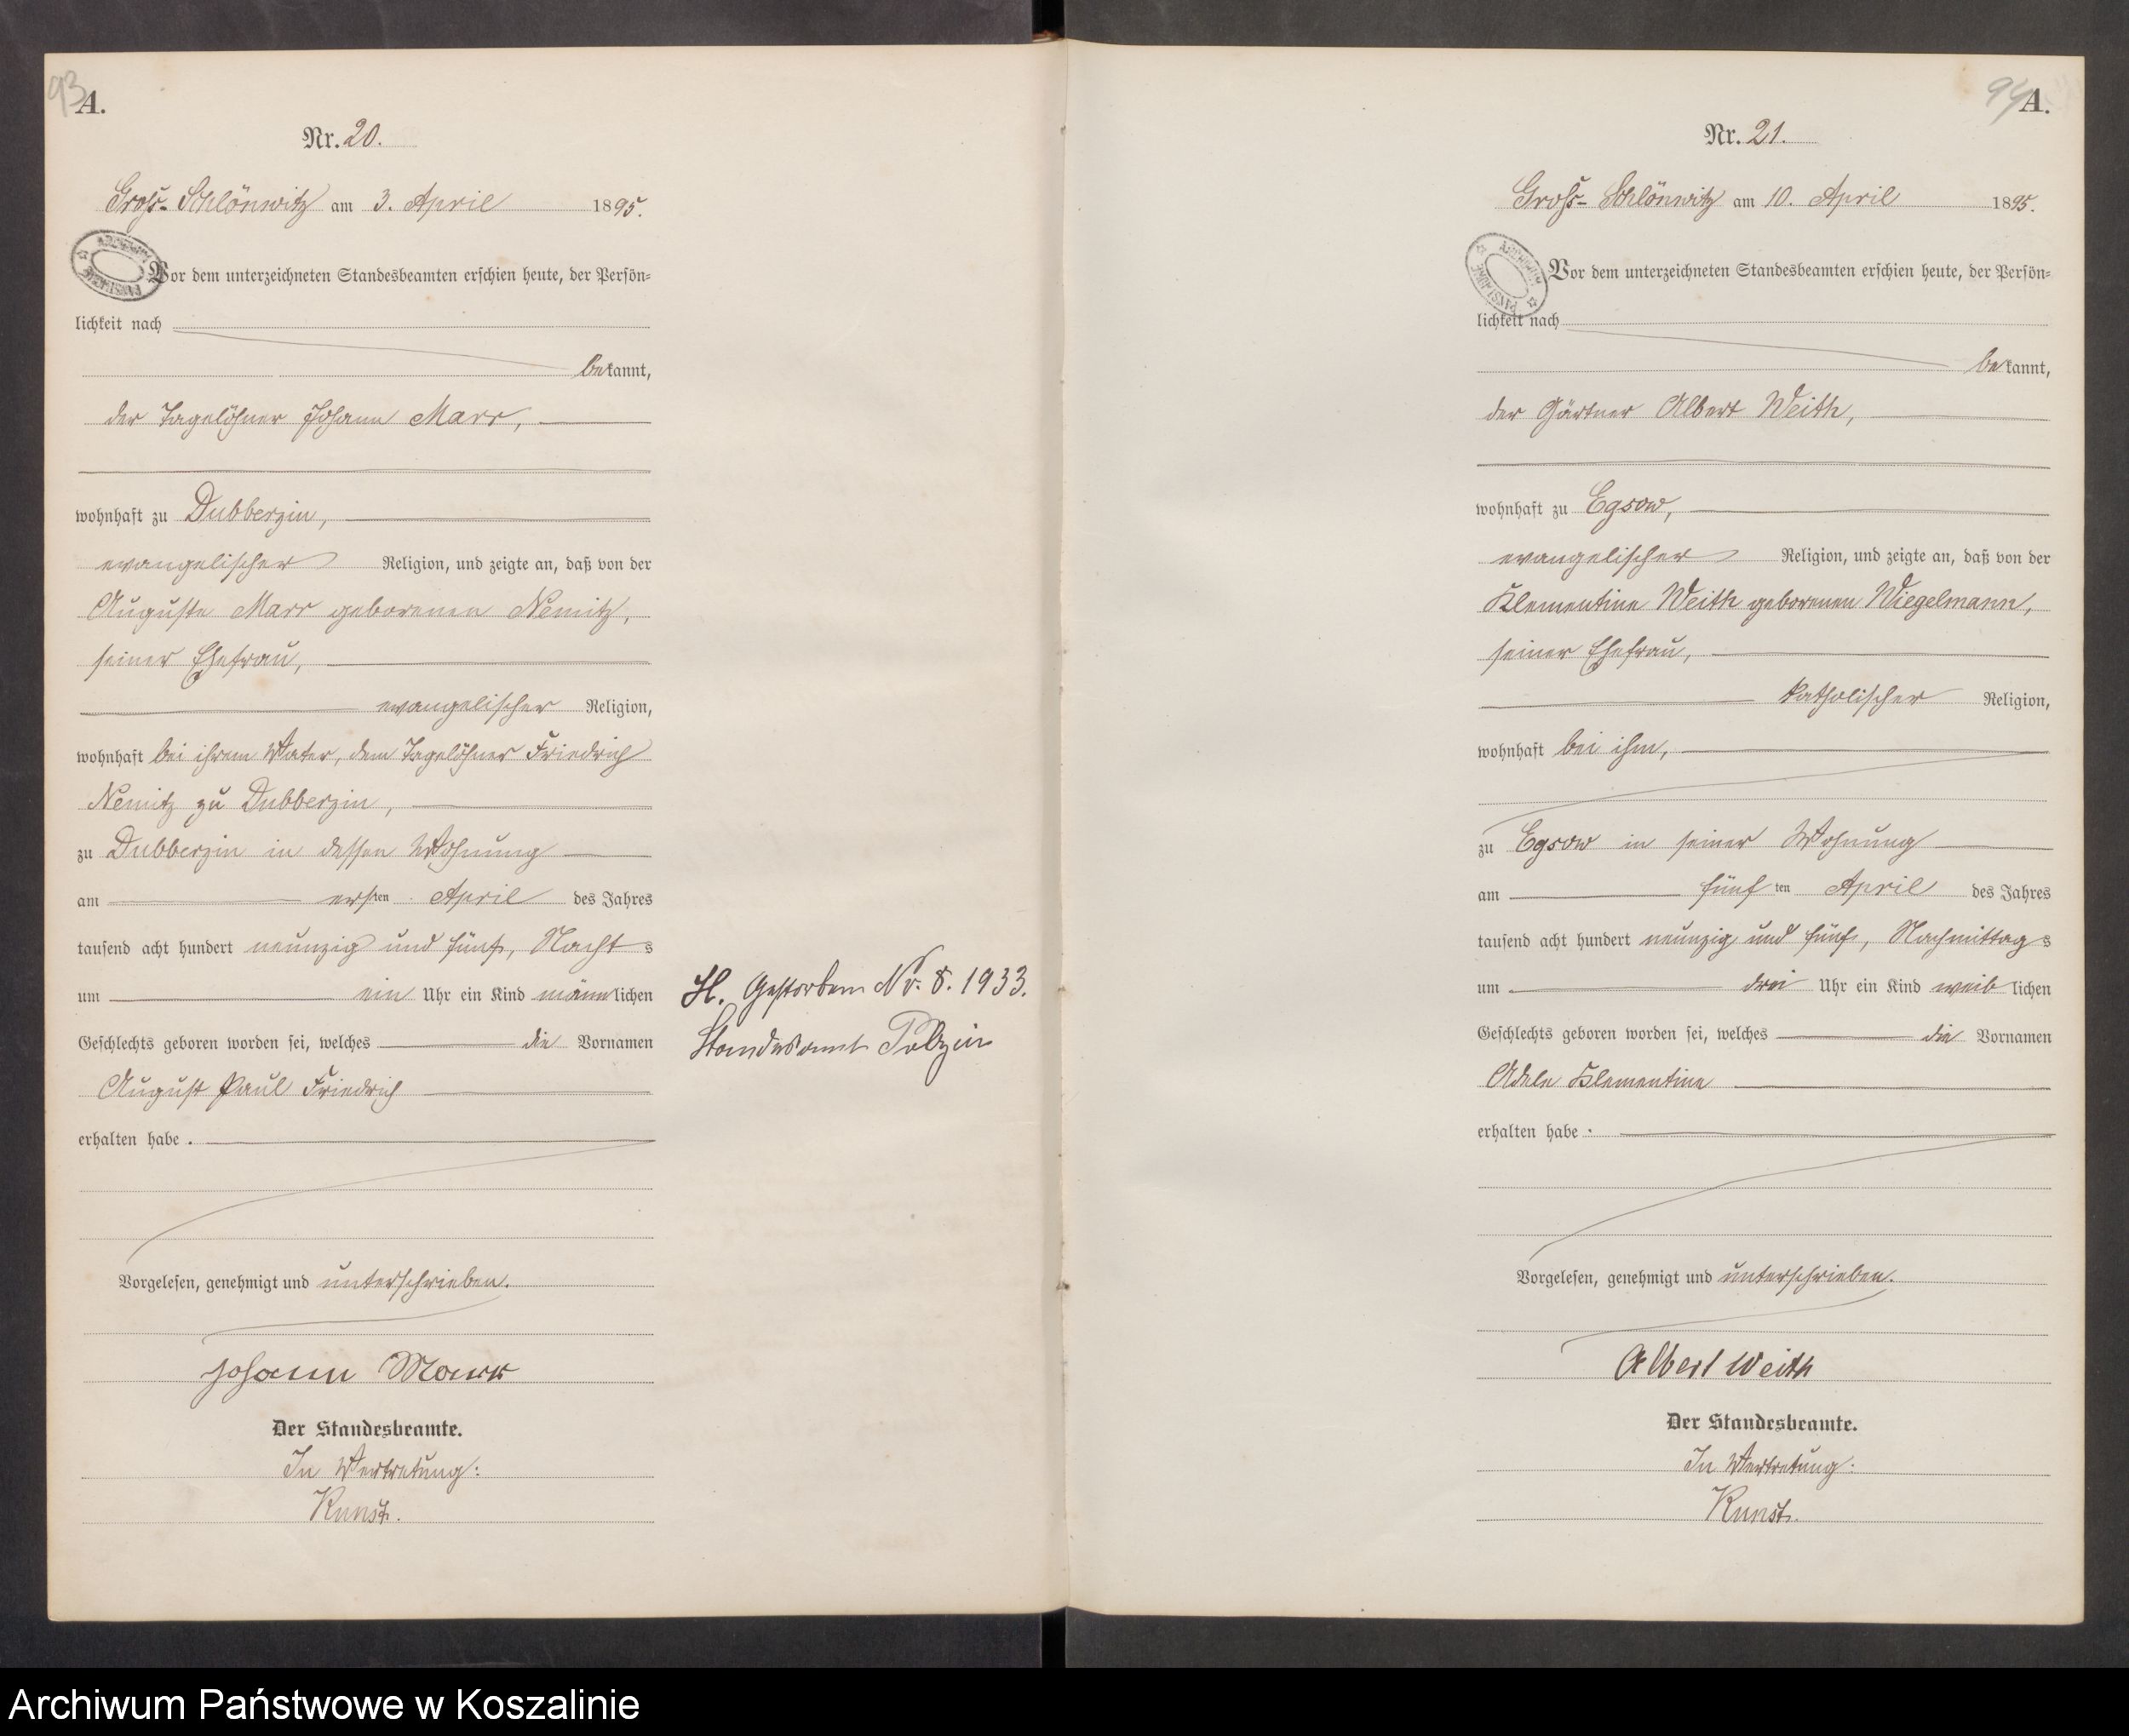 93
A.
Nr. 20.
Groß-Schlönwitz am 3. April 1895.
ARCHIWUM PAŃSTWOWE
Vor dem unterzeichneten Standesbeamten erschien heute, der Persön=
lichkeit nach
bekannt,
der Tagelöhner Johann Marr,
wohnhaft zu Dubberzin,
evangelischer Religion, und zeigte an, daß von der
Auguste Marr geborenen Nemitz,
seiner Ehefrau,
evangelischer Religion,
wohnhaft bei ihrem Vater, dem Tagelöhner Friedrich
Nemitz zu Dubberzin,
zu Dubberzin in dessen Wohnung
am ersten April des Jahres
tausend acht hundert neunzig und fünf, Nachts
um ein Uhr ein Kind männlichen
Geschlechts geboren worden sei, welches die Vornamen
August Paul Friedrich
erhalten habe.
Vorgelesen, genehmigt und unterschrieben.
Johann Marr
Der Standesbeamte.
In Vertretung:
Kunst.
H. Gestorben Nr. 8. 1933.
Standesamt Polzin
94
A.
Nr. 21.
Groß-Schlönwitz am 10. April 1895.
ARCHIWUM PAŃSTWOWE
Vor dem unterzeichneten Standesbeamten erschien heute, der Persön=
lichkeit nach
bekannt,
der Gärtner Albert Weith,
wohnhaft zu Egsow,
evangelischer Religion, und zeigte an, daß von der
Klementine Weith geborenen Wiegelmann,
seiner Ehefrau,
katholischer Religion,
wohnhaft bei ihm,
zu Egsow in seiner Wohnung
am fünften April des Jahres
tausend acht hundert neunzig und fünf, Nachmittags
um drei Uhr ein Kind weiblichen
Geschlechts geboren worden sei, welches die Vornamen
Adele Klementine
erhalten habe.
Vorgelesen, genehmigt und unterschrieben.
Albert Weith
Der Standesbeamte.
In Vertretung:
Kunst.
Archiwum Państwowe w Koszalinie